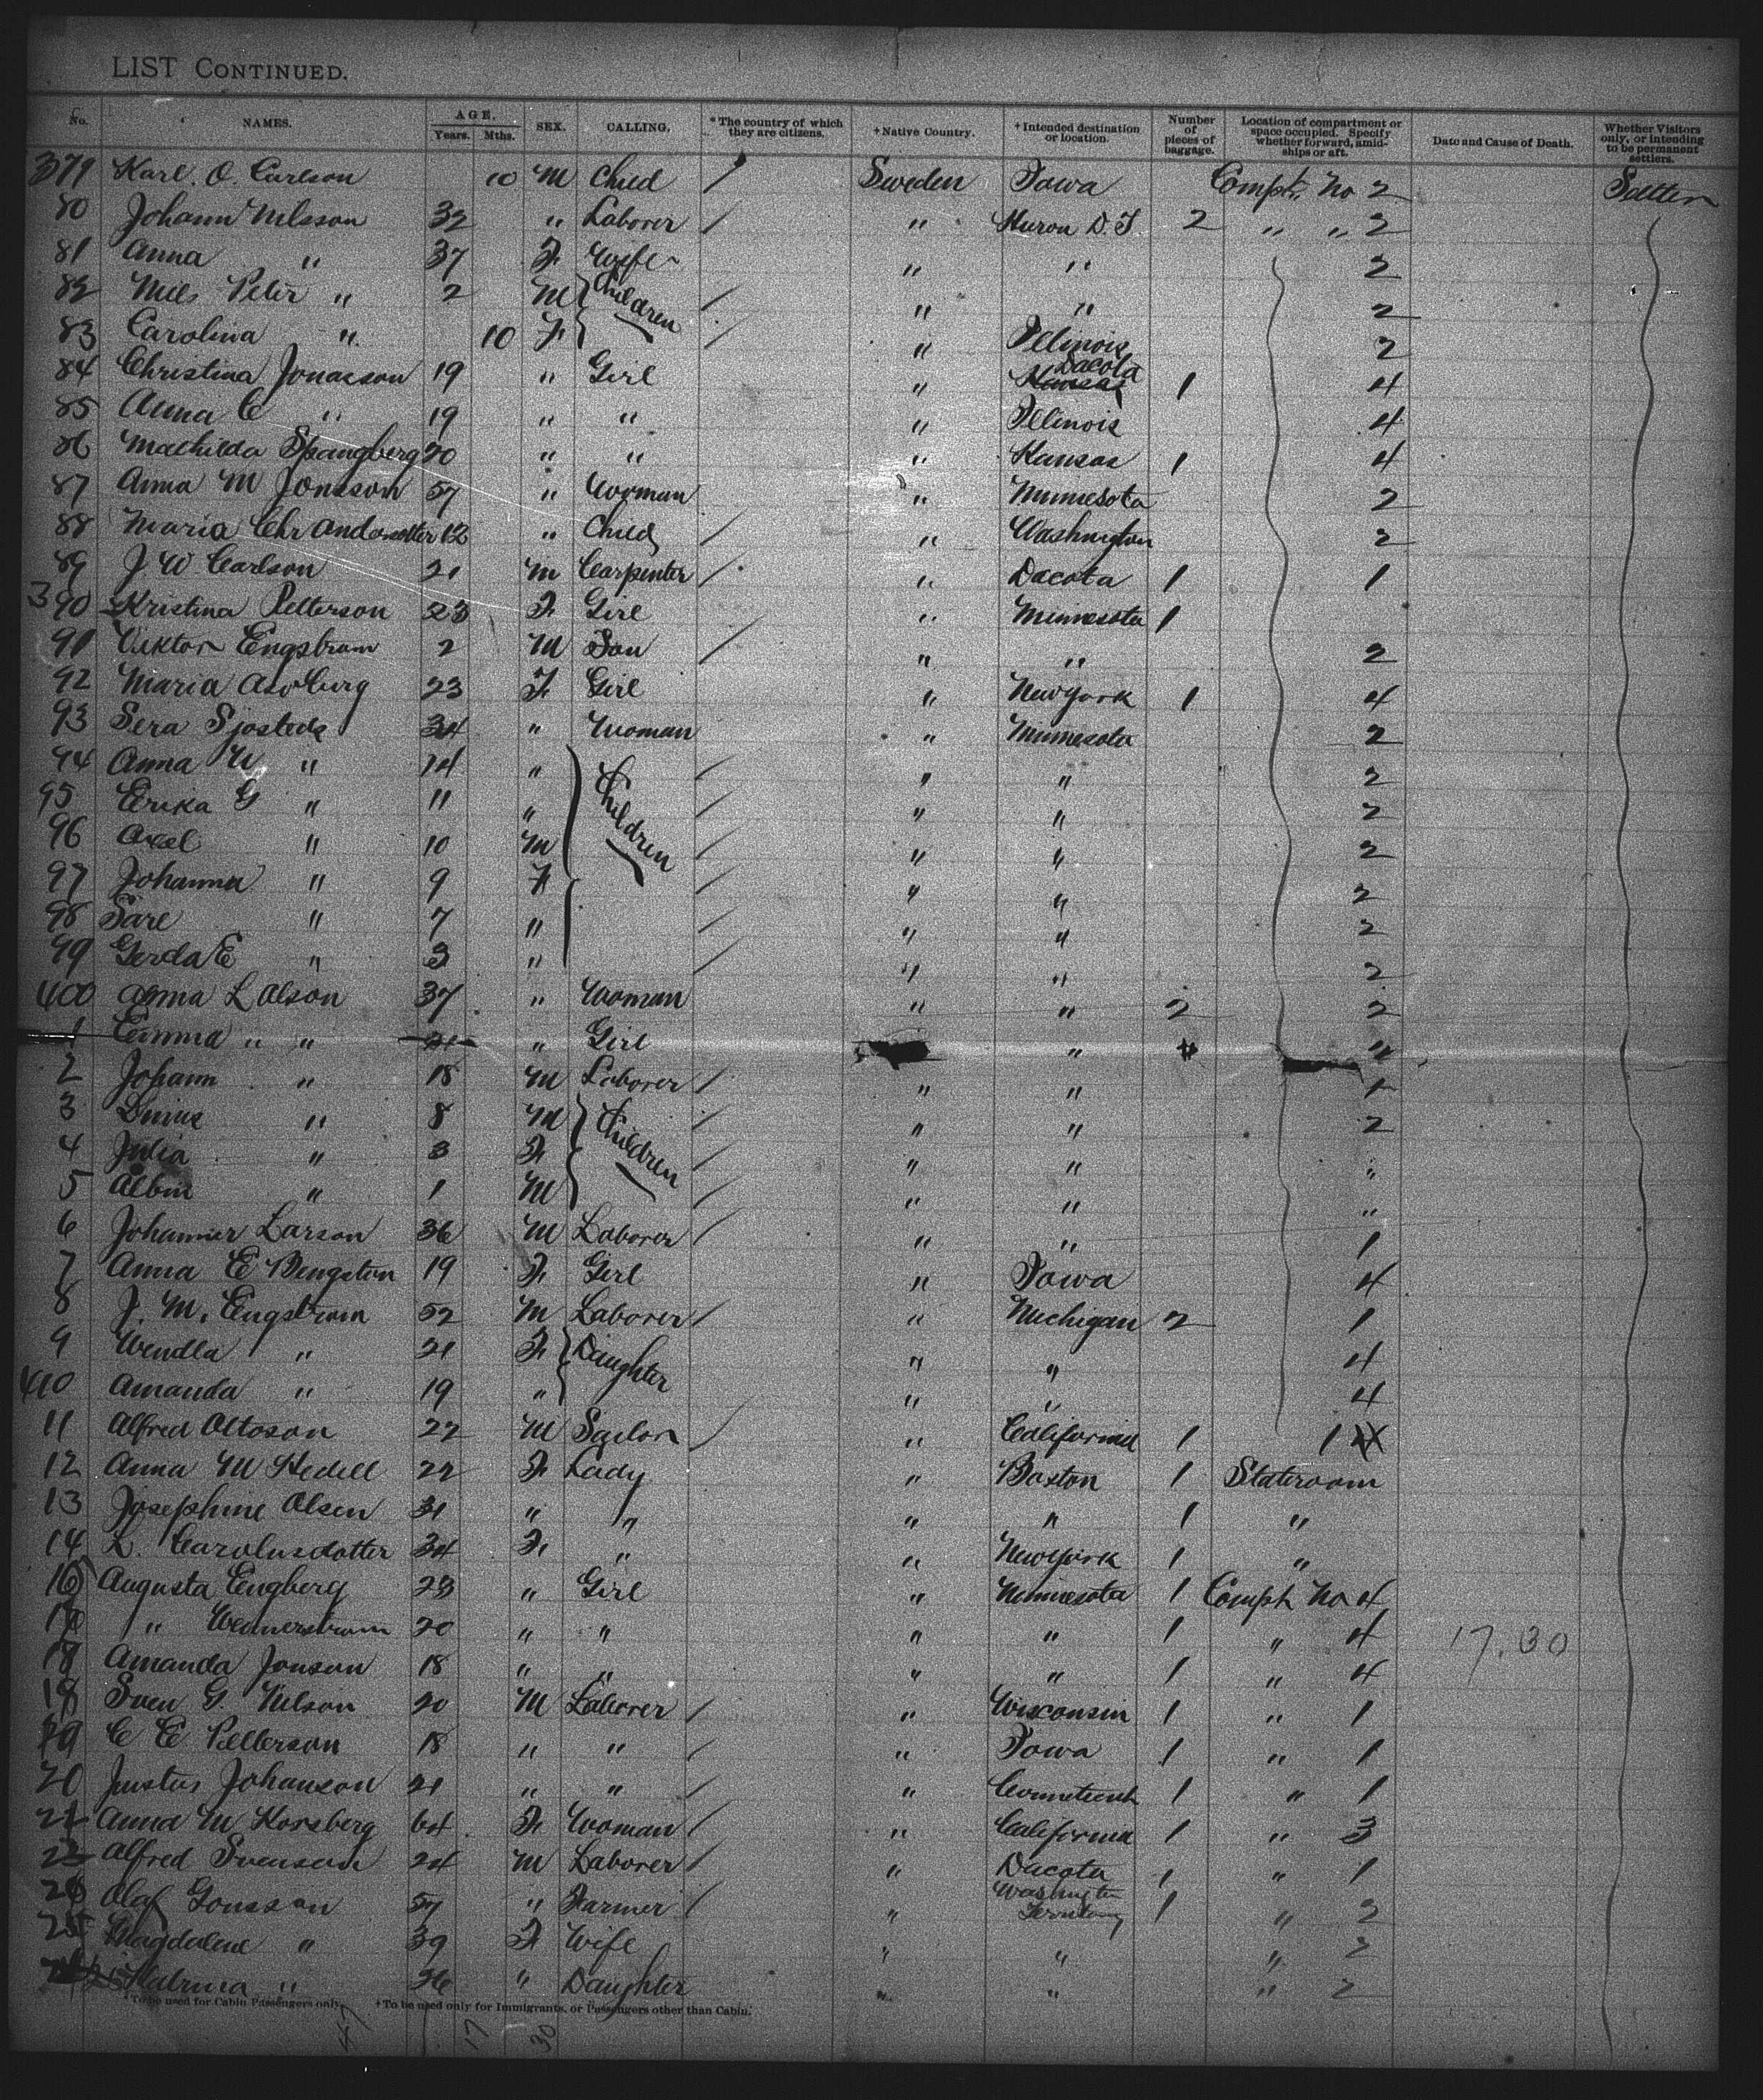 LIST CONTINUED.
No. NAMES. AGE. Years. Mths. SEX. CALLING. *The country of which they are citizens. +Native Country. +Intended destination or location. Number of pieces of baggage. Location of compartment or space occupied. Specify whether forward, amidships or aft. Date and Cause of Death. Whether Visitors only, or intending to be permanent settlers.
379 Karl. O. Carlson 10 M Child / Sweden Iowa Compt. No 2 Settler
80 Johann Nilsson 32 " Laborer / " Huron D.T. 2 " " 2
81 Anna " 37 F. Wife " " 2
82 Nils Peter " 2 M Children / " " 2
83 Carolina " 10 F. / " Illinois 2
84 Christina Jonasson 19 " Girl " Kansas Dacota 1 4
85 Anna C " 19 " " " Illinois 4
86 Mathilda Spangberg 20 " " " Kansas 1 4
87 Anna M Jonsson 57 " Woman " Minnesota 2
88 Maria Chr Andersotter 12 " Child / " Washington 2
89 J. W Carlson 21 M Carpenter / " Dacota 1 1
390 Kristina Petterson 23 F. Girl " Minnesota 1
91 Viktor Engstrom 2 M Son / " " 2
92 Maria 23 F. Girl " New York 1 4
93 Sera Sjostedt 34 " Woman " Minnesota 2
94 Anna " 14 " Children / " " 2
95 Erika G " 11 " / " " 2
96 Axel " 10 M / " " 2
97 Johanna " 9 F / " " 2
98 Sare " 7 " / " " 2
99 Gerda E " 3 " / " " 2
400 Anna L Olson 37 " Woman " " 2 2
1 Emma " " 21 " Girl " "
2 Johann " 18 M Laborer / " " 1
3 " 8 M Children / " " 2
4 Julia " 3 F. / " " "
5 Albin " 1 M / " " "
6 Larson 36 M Laborer / " " 1
7 Anna E Bengston 19 F. Girl " Iowa 4
8 J. M. Engstrom 52 M Laborer / " Michigan 2 1
9 Wendla " 21 F. Daughter " " 4
410 Amanda " 19 " " " 4
11 Alfred Ottoson 22 M Sailor / " California 1 1
12 Anna M Hedell 22 F. Lady " Boston 1 Stateroom
13 Josephine Olsen 31 " " " " 1 "
14 L. Carolusdotter 34 F. " " New York 1 "
Augusta Engberg 23 " Girl " Minnesota 1 Compt. No 4
" Wennerstrom 20 " " " " 1 " 4 17.30
Amanda Jonson 18 " " " " 1 " 4
Sven G. Nilson 20 M Laborer / " Wisconsin 1 " 1
C E Petterson 18 " " / " Iowa 1 " 1
20 Justus Johanson 21 " " / " Conneticut 1 " 1
Anna M Korsberg 64 F. Woman / " California 1 " 3
Alfred Svenson 24 M Laborer / " Dacota 1 " 1
Olaf Gonsson 57 " Farmer / " Washington Territory 1 " 2
Magdalene " 39 F. Wife " " " 2
Katrina " 26 " Daughter " " " 2
*To be used for Cabin Passengers only. +To be used only for Immigrants, or Passengers other than Cabin.
47 17 30